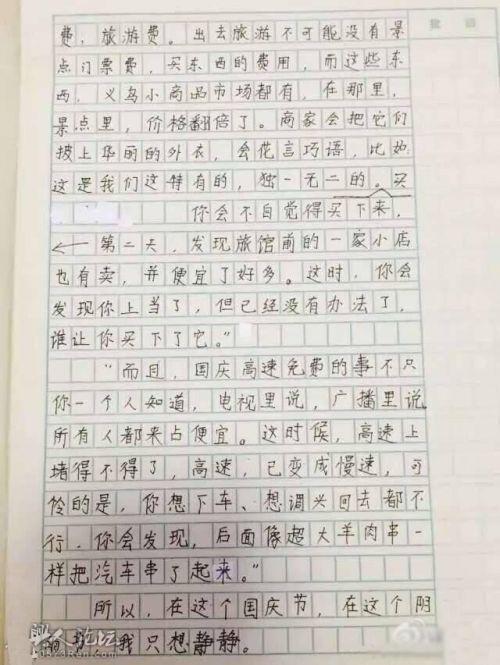 批语
费，旅游费。出去旅游不可能没有景
点门票费，买东西的费用，而这些东
西，义乌小商品市场都有，在那里，
景点里，价格翻倍了。商家会把它们
披上华丽的外衣，会花言巧语，比如
这是我们这特有的，独一无二的。买
你会不自觉得买下来，
第二天，发现旅馆前的一家小店
也有卖，并便宜了好多。这时，你会
发现你上当了，但已经没有办法了，
谁让你买下了它。”
“而且，国庆高速免费的事不只
你一个人知道，电视里说，广播里说
所有人都来占便宜。这时候，高速上
堵得不得了，高速，已变成慢速，可
怜的是，你想下车、想调头回去都不
行，你会发现，后面像超大羊肉串一
样把汽车串了起来。”
所以，在这个国庆节，在这个阴
我只想静静。
论坛